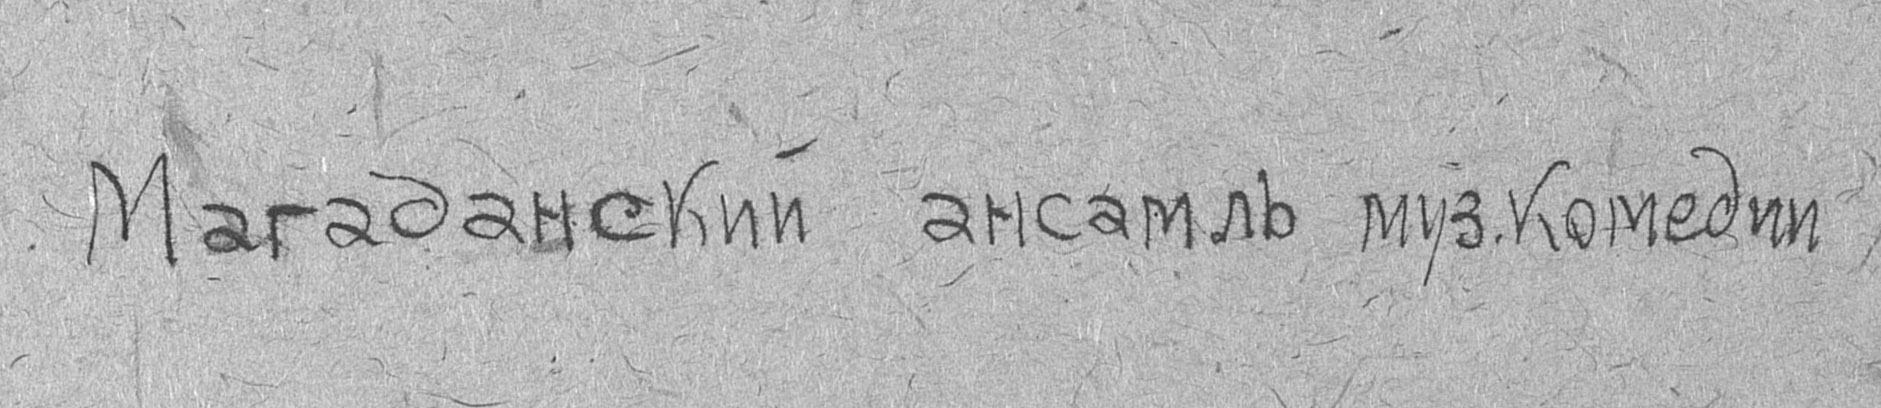 Магаданский ансамль муз.комедии